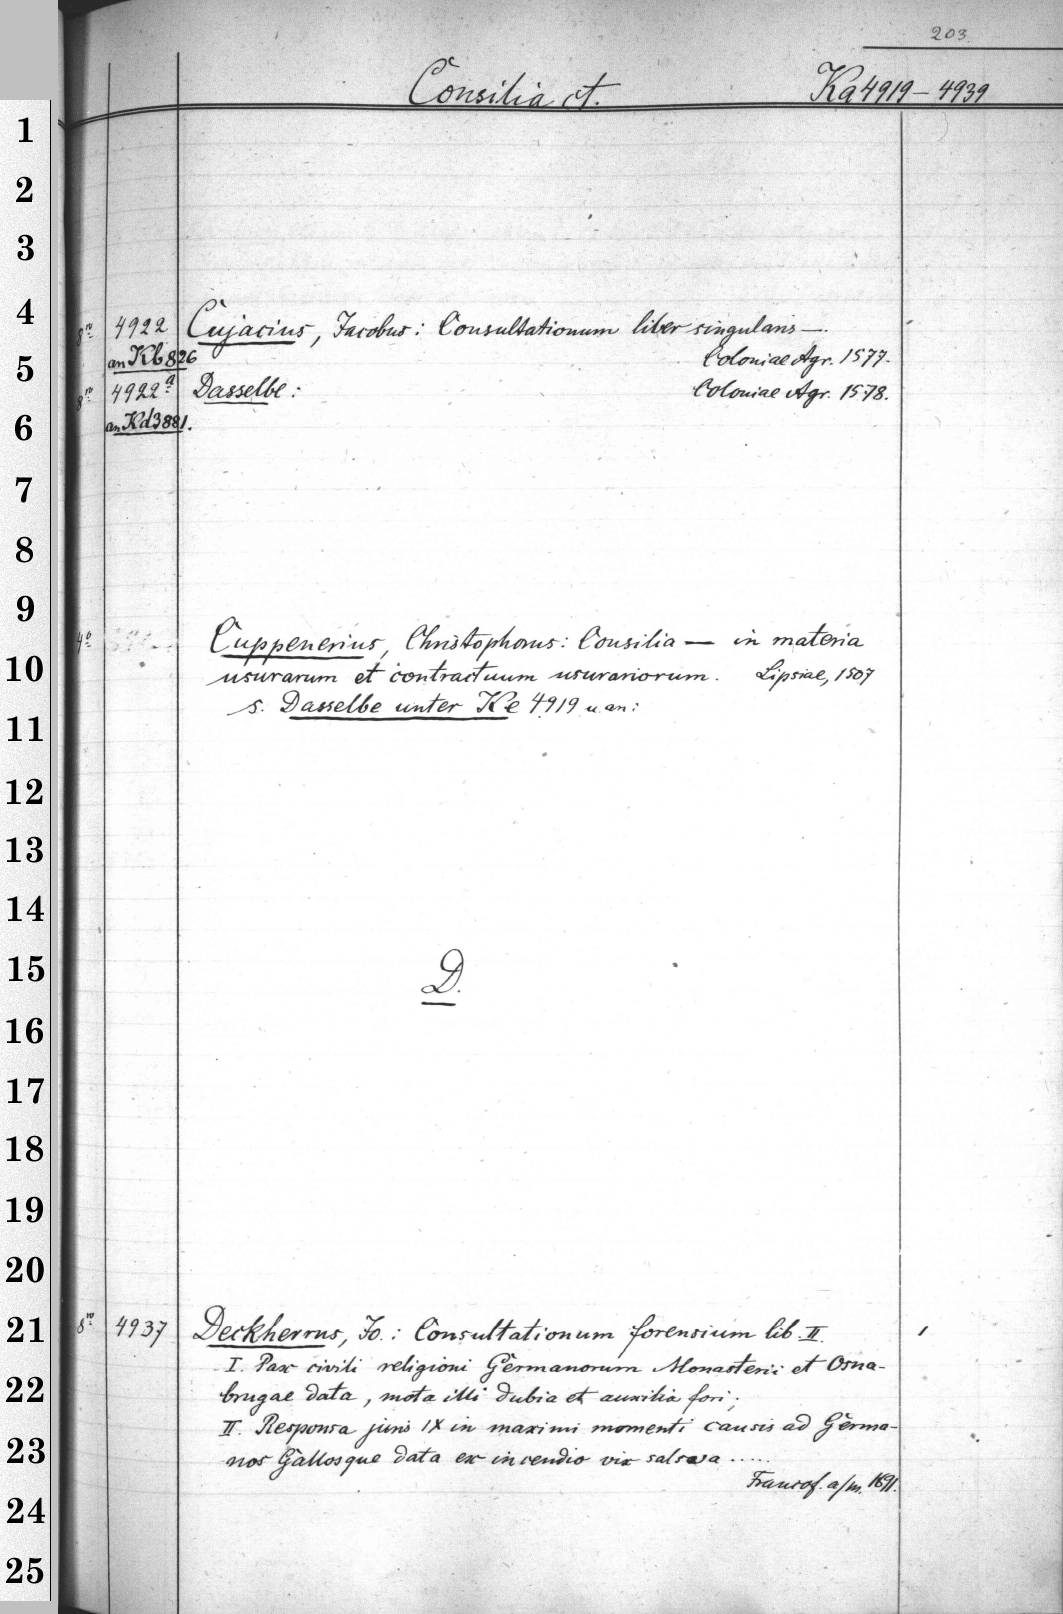 203.
Consilia ct. Ka 4919 – 4939
1
2
3
4
8ᵛᵒ 4922 Cujacius, Jacobus: Consultationum liber singularis —.
5
an Kb 826 Coloniae Agr. 1577.
8ᵛᵒ 4922ᵃ Dasselbe: Coloniae Agr. 1578.
6
an Kd 3881.
7
8
9
4º Cuppenerius, Christophorus: Consilia — in materia
10
usurarum et contractuum usurariorum. Lipsiae, 1507
11
s. Dasselbe unter Ke 4919 u. an:
12
13
14
15
D.
16
17
18
19
20
21
8ᵛᵒ 4937 Deckherrus, Jo.: Consultationum forensium lib. II.
I. Pax civili religioni Germanorum Monasterii et Osna-
22
brugae data, mota illi dubia et auxilia fori;
II. Responsa juris IX in maximi momenti causis ad Germa-
23
nos Gallosque data ex incendio vix salva .....
Francof. a/m. 1691.
24
25